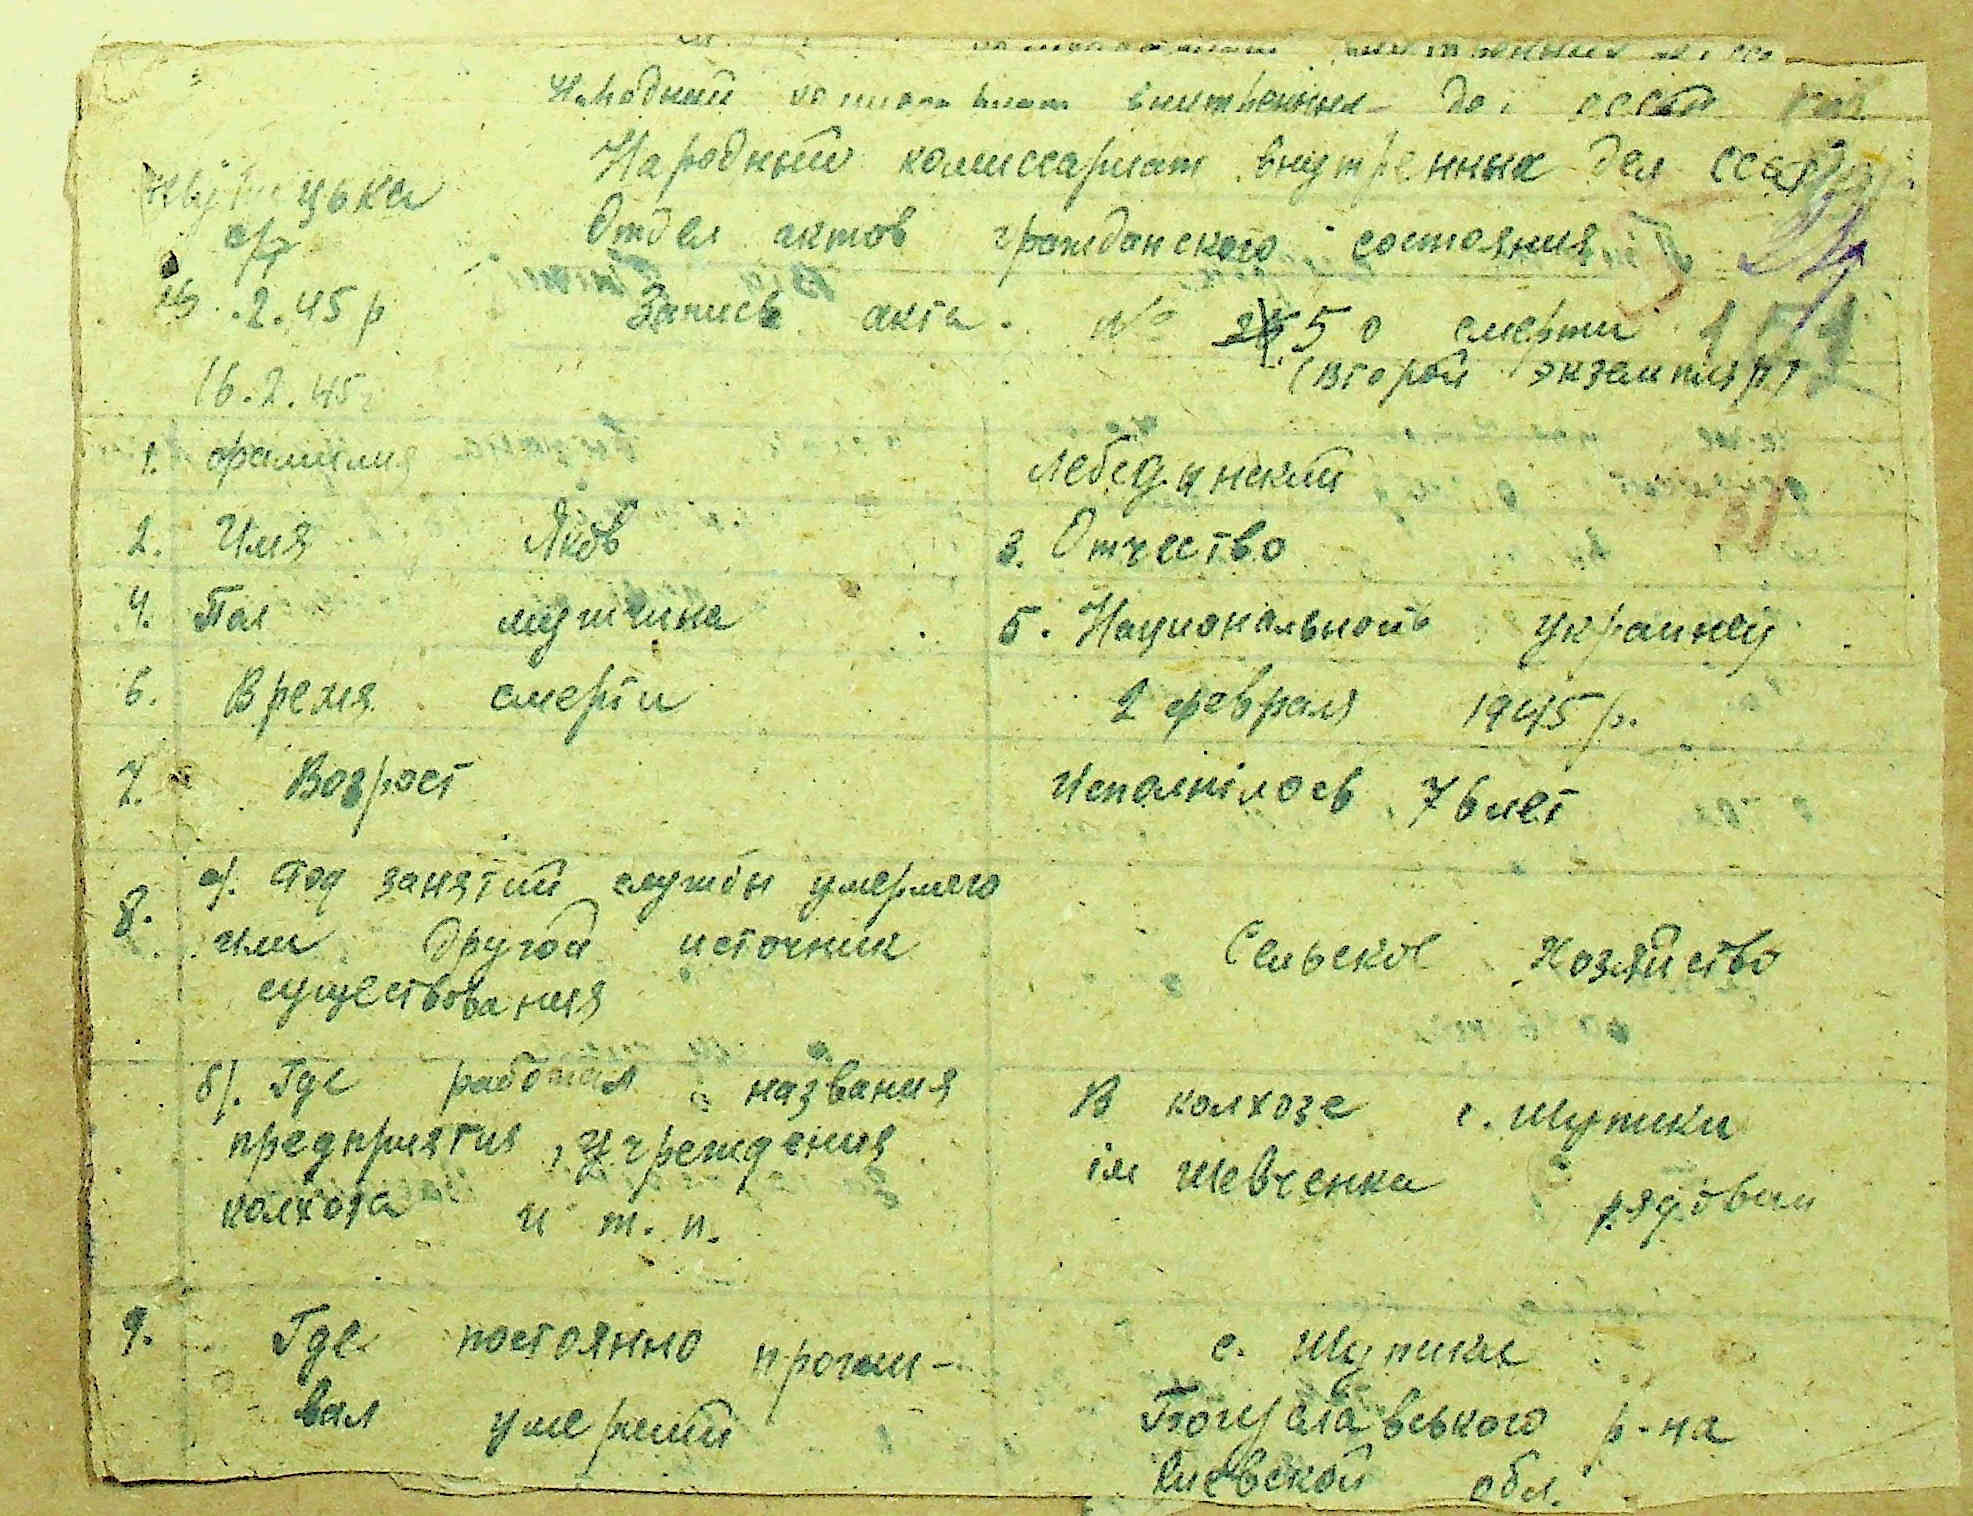 Народный комиссариат внутренних дел СССР
Народный комиссариат внутренных дел СССР
Отдел актов гражданского состояния
с/р
.2.45 р
Запись акта № 5 о смерти
(второй экземпляр)
16.2.45г
1. фамилия Лебединский
2. Имя Яков 3. Отчество
4. Пол мужчина 5. Национальность украинец
6. Время смерти 2 февраля 1945 р.
7. Возрост Исполнілось 76 лет
8. а). Род занятий службы умершего
или другой источник Сельское Хозяйство
существования
б). Где работал названия В колхозе с. Шупики
предприятия, учреждения ім Шевченка рядовым
колхоза и т. п.
9. Где постоянно прожи- с. Шупики
вал умерший Богуславського р-на
Киевской обл.